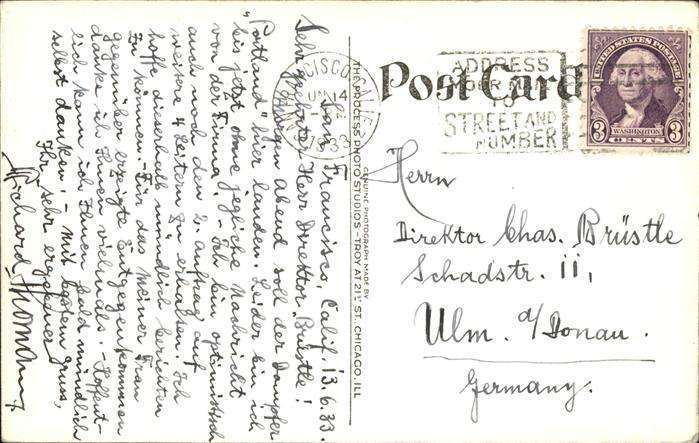 San Francisco, Calif. 13.6.33.
Sehr geehrter Herr Direktor Brüstle!
Morgen abend soll der Dampfer
"Portland" hier landen. Leider bin ich
bis jetzt ohne jegliche Nachricht
von der Firma. - Ich bin optimistisch
auch noch den 2. Auftrag auf
weitere 4 Leitern zu erhalten. Ich
hoffe dieserhalb mündlich berichten
zu können. - Für das meiner Frau
gegenüber erzeigte Entgegenkommen
danke ich Ihnen vielmals. - Hoffent-
lich kann ich Ihnen bald mündlich
selbst danken! - Mit bestem Gruss,
Ihr sehr ergebener
Richard
THE PROCESS PHOTO STUDIOS - TROY AT 21ST ST. CHICAGO, ILL
GENUINE PHOTOGRAPH MADE BY
Post Card
ADDRESS
STREET AND
NUMBER
UNITED STATES POSTAGE
3 3
WASHINGTON
CENTS
Herrn
Direktor Chas. Brüstle
Schadstr. 11,
Ulm. a/Donau.
Germany.